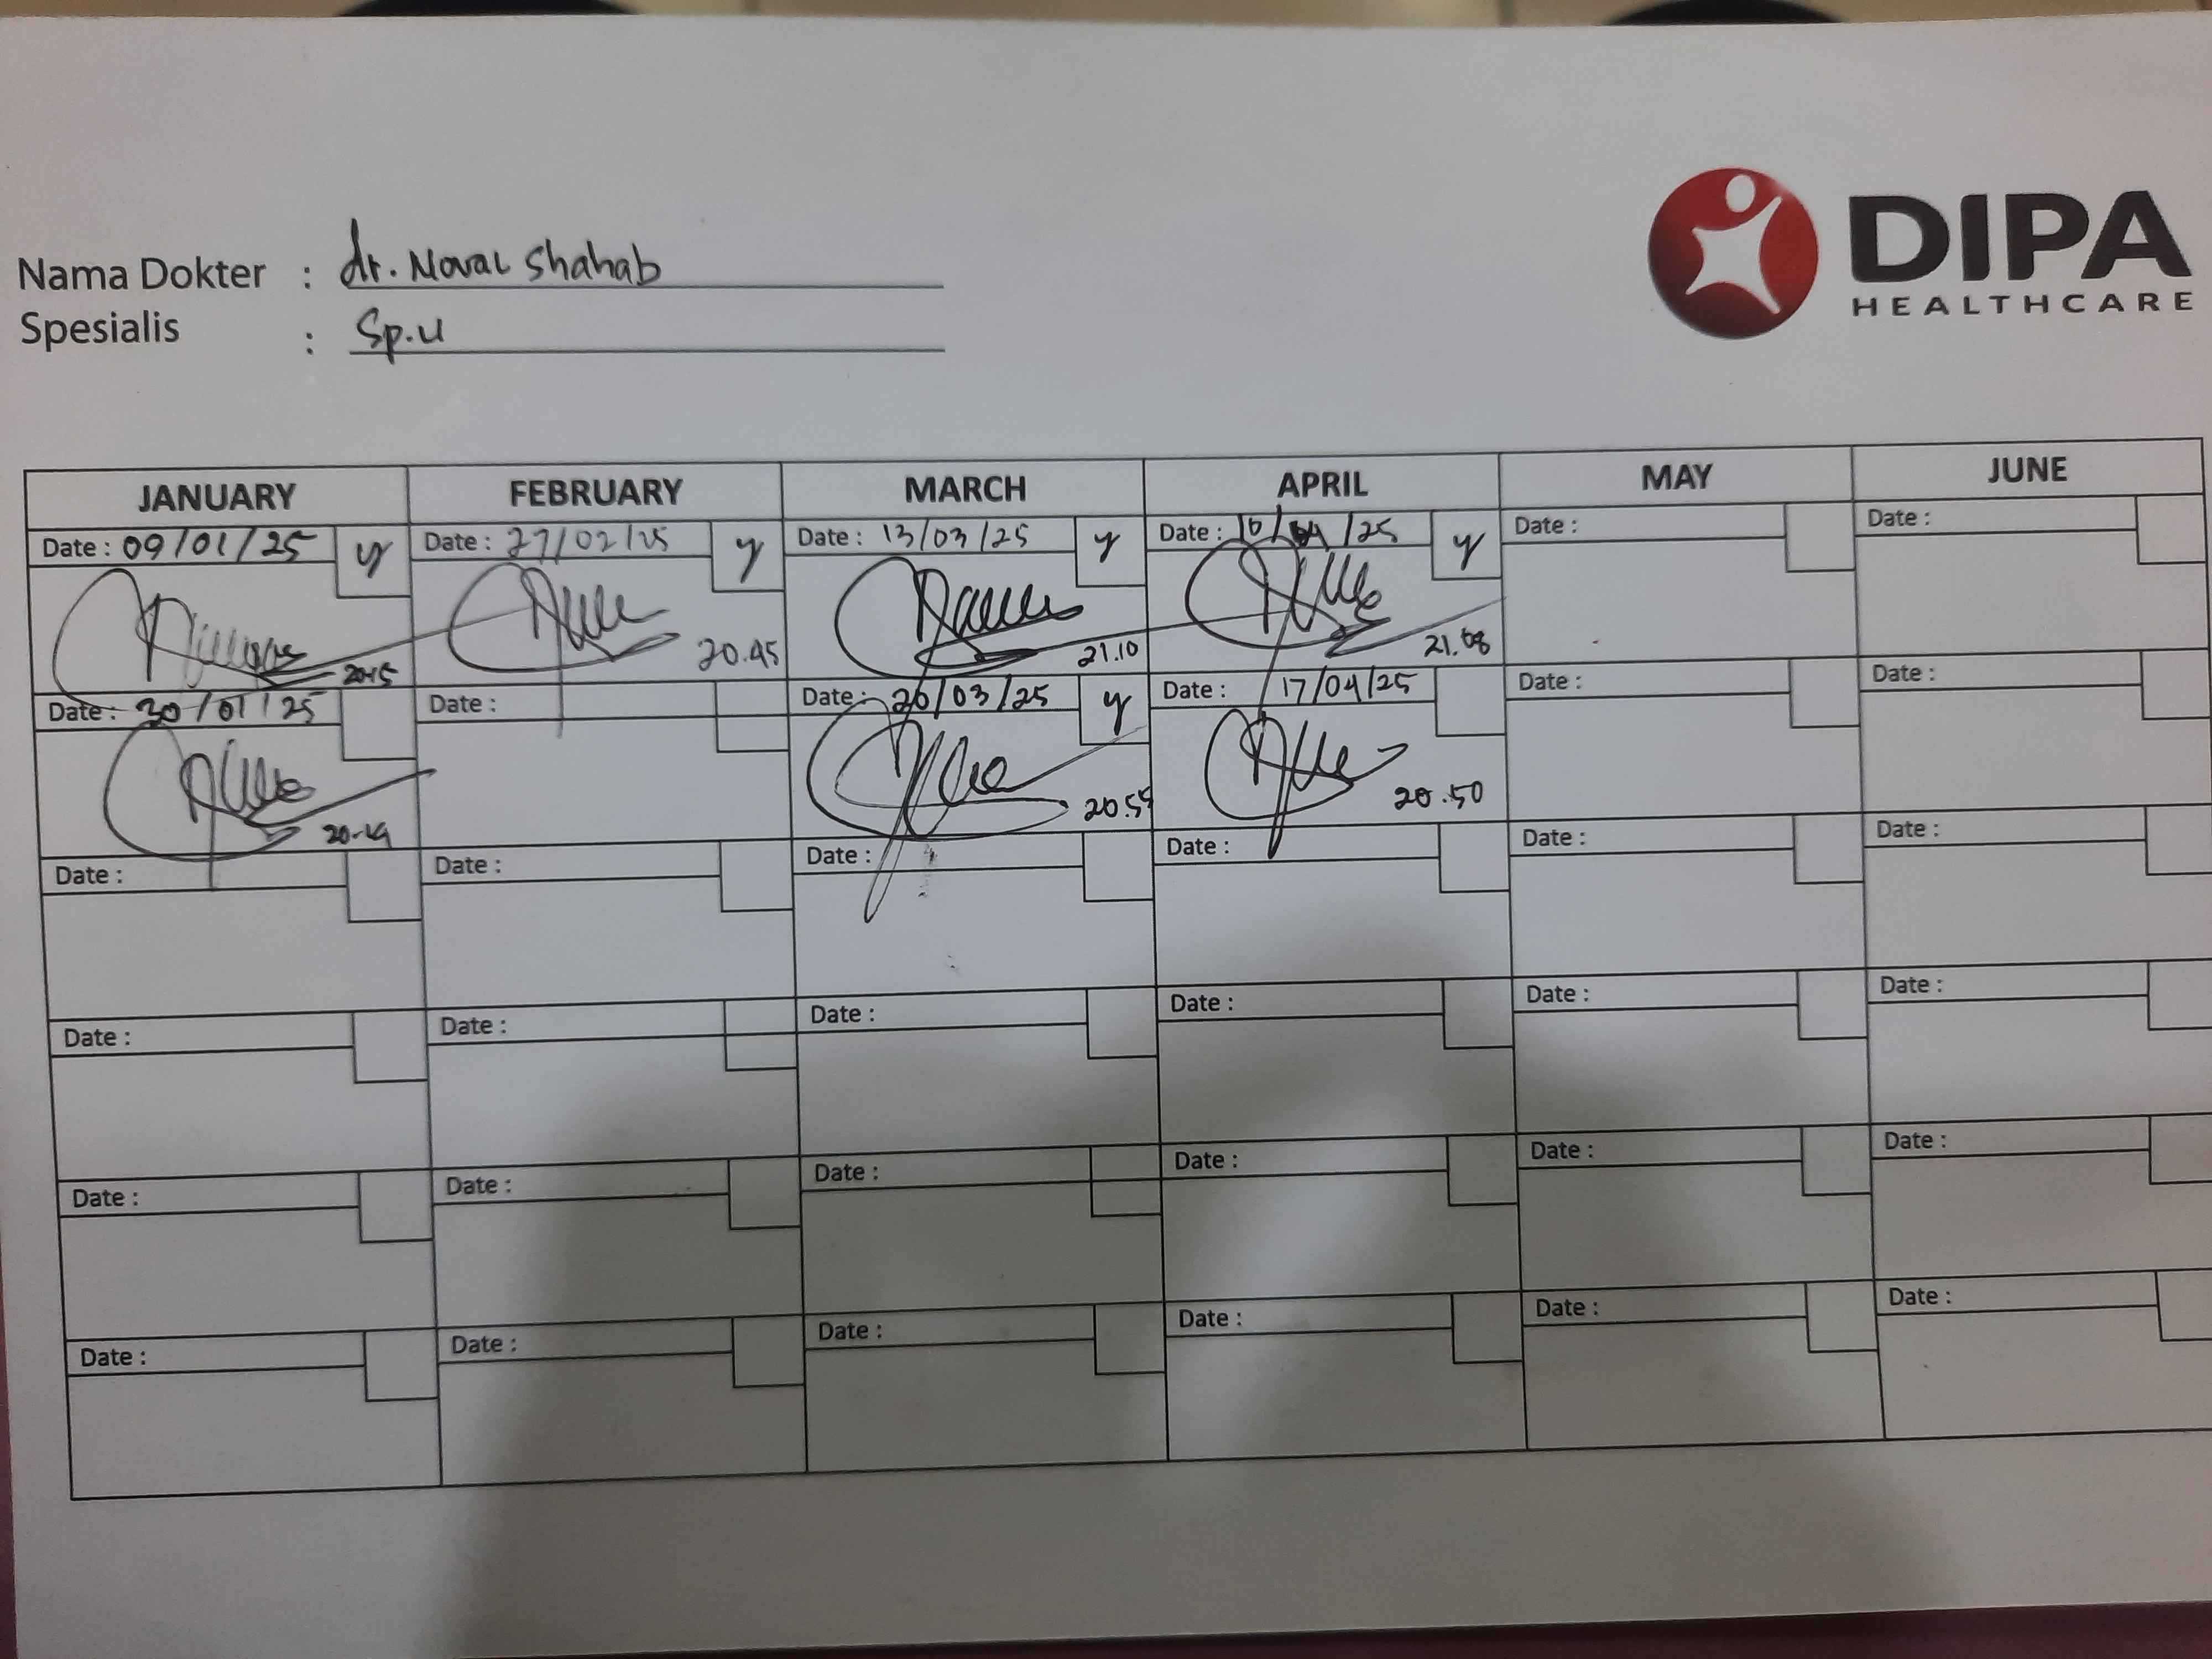 DIPA
HEALTHCARE
Nama Dokter : dr. Noval Shahab
Spesialis : Sp.U
JANUARY FEBRUARY MARCH APRIL MAY JUNE
Date : 09/01/25 y Date : 27/02/25 y Date : 13/03/25 y Date : 10/04/25 y Date : Date :
20.45 21.10 21.08
Date : 30/01/25 Date : Date : 20/03/25 y Date : 17/04/25 Date : Date :
20.50
Date : Date : Date : Date : Date : Date :
Date : Date : Date : Date : Date : Date :
Date : Date : Date : Date : Date : Date :
Date : Date : Date : Date : Date : Date :